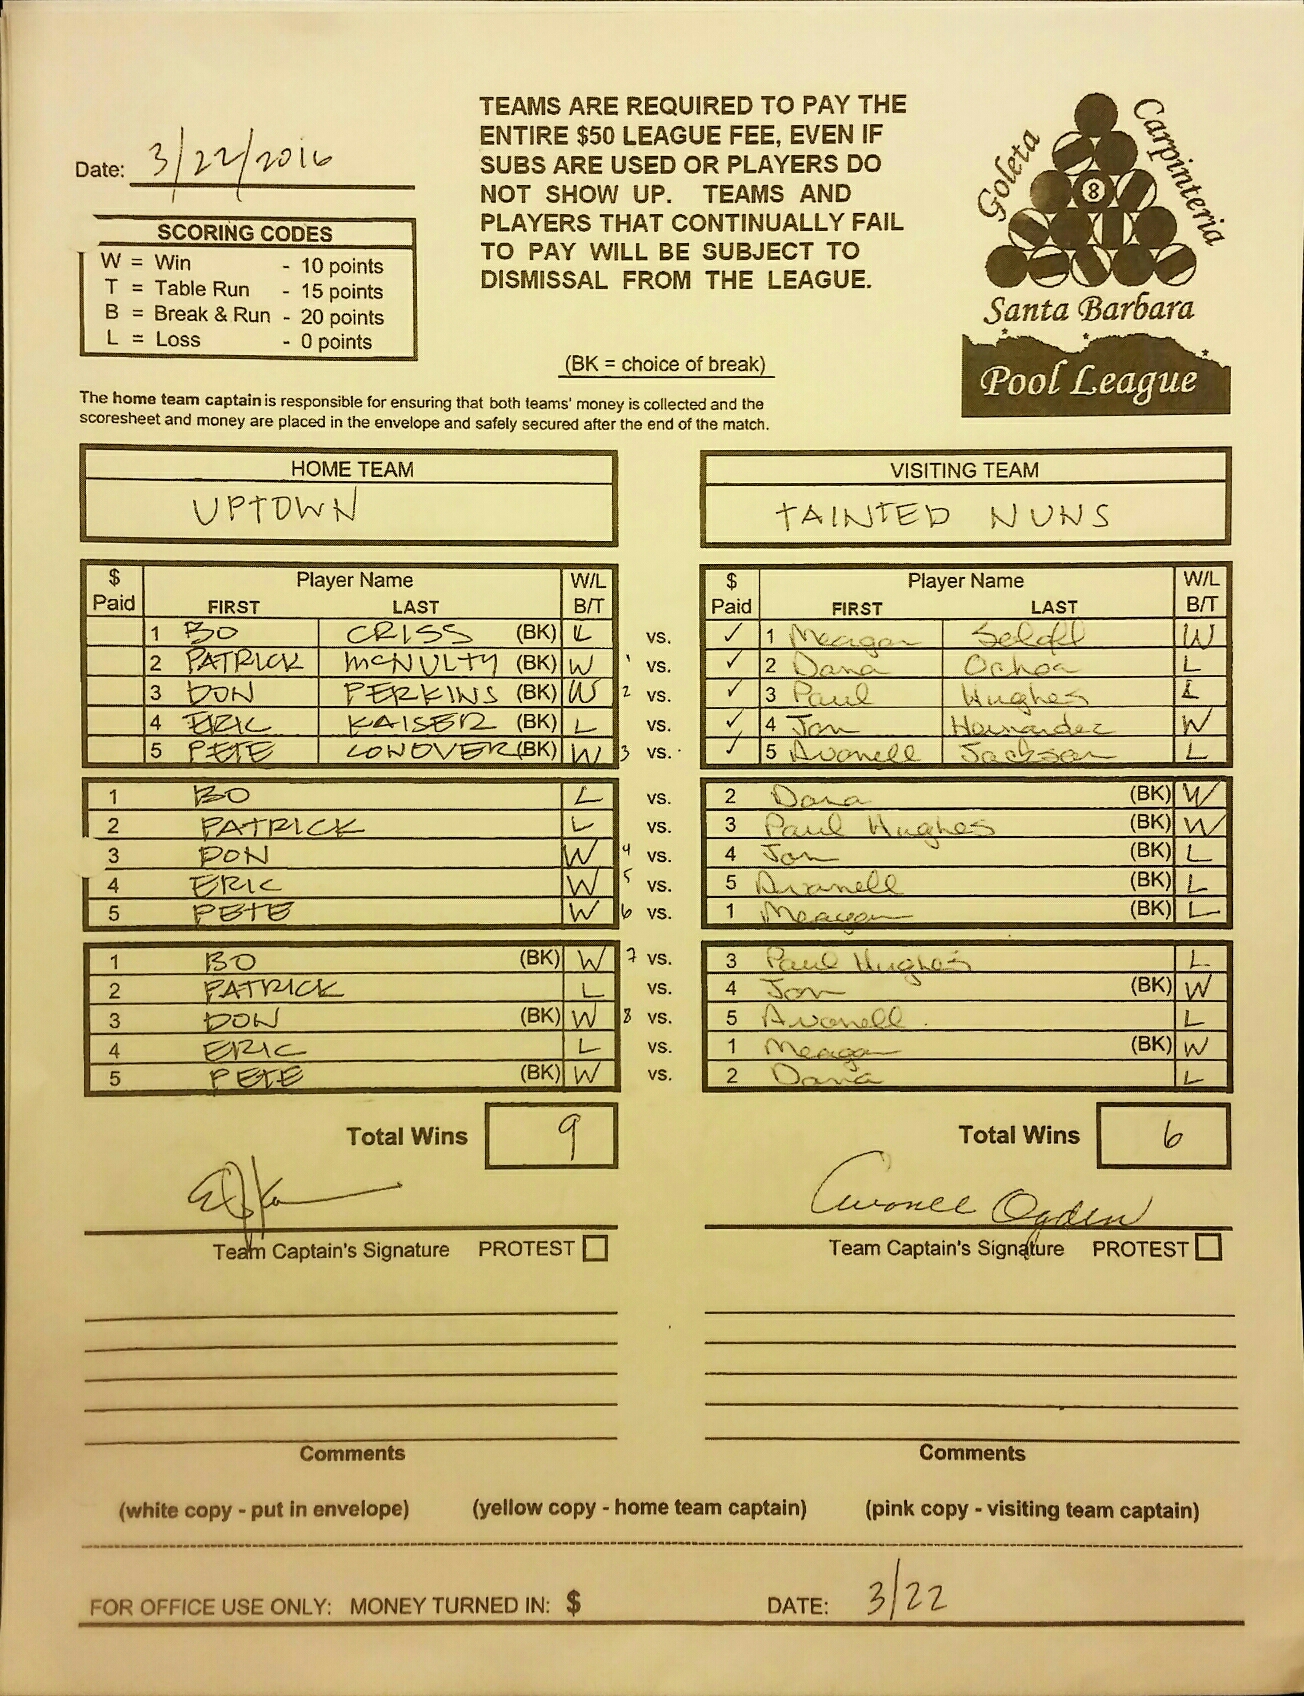 Date: 3/22/2016
TEAMS ARE REQUIRED TO PAY THE
ENTIRE $50 LEAGUE FEE, EVEN IF
SUBS ARE USED OR PLAYERS DO
NOT SHOW UP. TEAMS AND
PLAYERS THAT CONTINUALLY FAIL
TO PAY WILL BE SUBJECT TO
DISMISSAL FROM THE LEAGUE.
Goleta
Carpinteria
8
Santa Barbara
Pool League
SCORING CODES
W = Win - 10 points
T = Table Run - 15 points
B = Break & Run - 20 points
L = Loss - 0 points
(BK = choice of break)
The home team captain is responsible for ensuring that both teams' money is collected and the
scoresheet and money are placed in the envelope and safely secured after the end of the match.
HOME TEAM VISITING TEAM
UPTOWN TAINTED NUNS
$ Player Name W/L $ Player Name W/L
Paid FIRST LAST B/T Paid FIRST LAST B/T
1 BO CRISS (BK) L vs. ✓ 1 Meagan W
2 PATRICK McNULTY (BK) W 1 vs. ✓ 2 Dana Ochoa L
3 DON PERKINS (BK) W 2 vs. ✓ 3 Paul Hughes L
4 ERIC KAISER (BK) L vs. ✓ 4 Jon Hernandez W
5 PETE CONOVER (BK) W 3 vs. ✓ 5 Avonell Jackson L
1 BO L vs. 2 Dana (BK) W
2 PATRICK L vs. 3 Paul Hughes (BK) W
3 DON W 4 vs. 4 Jon (BK) L
4 ERIC W 5 vs. 5 Avonell (BK) L
5 PETE W 6 vs. 1 Meagan (BK) L
1 BO (BK) W 7 vs. 3 Paul Hughes L
2 PATRICK L vs. 4 Jon (BK) W
3 DON (BK) W 8 vs. 5 Avonell L
4 ERIC L vs. 1 Meagan (BK) W
5 PETE (BK) W vs. 2 Dana L
Total Wins 9 Total Wins 6
Avonell Ogden
Team Captain's Signature PROTEST Team Captain's Signature PROTEST
Comments Comments
(white copy - put in envelope) (yellow copy - home team captain) (pink copy - visiting team captain)
FOR OFFICE USE ONLY: MONEY TURNED IN: $ DATE: 3/22